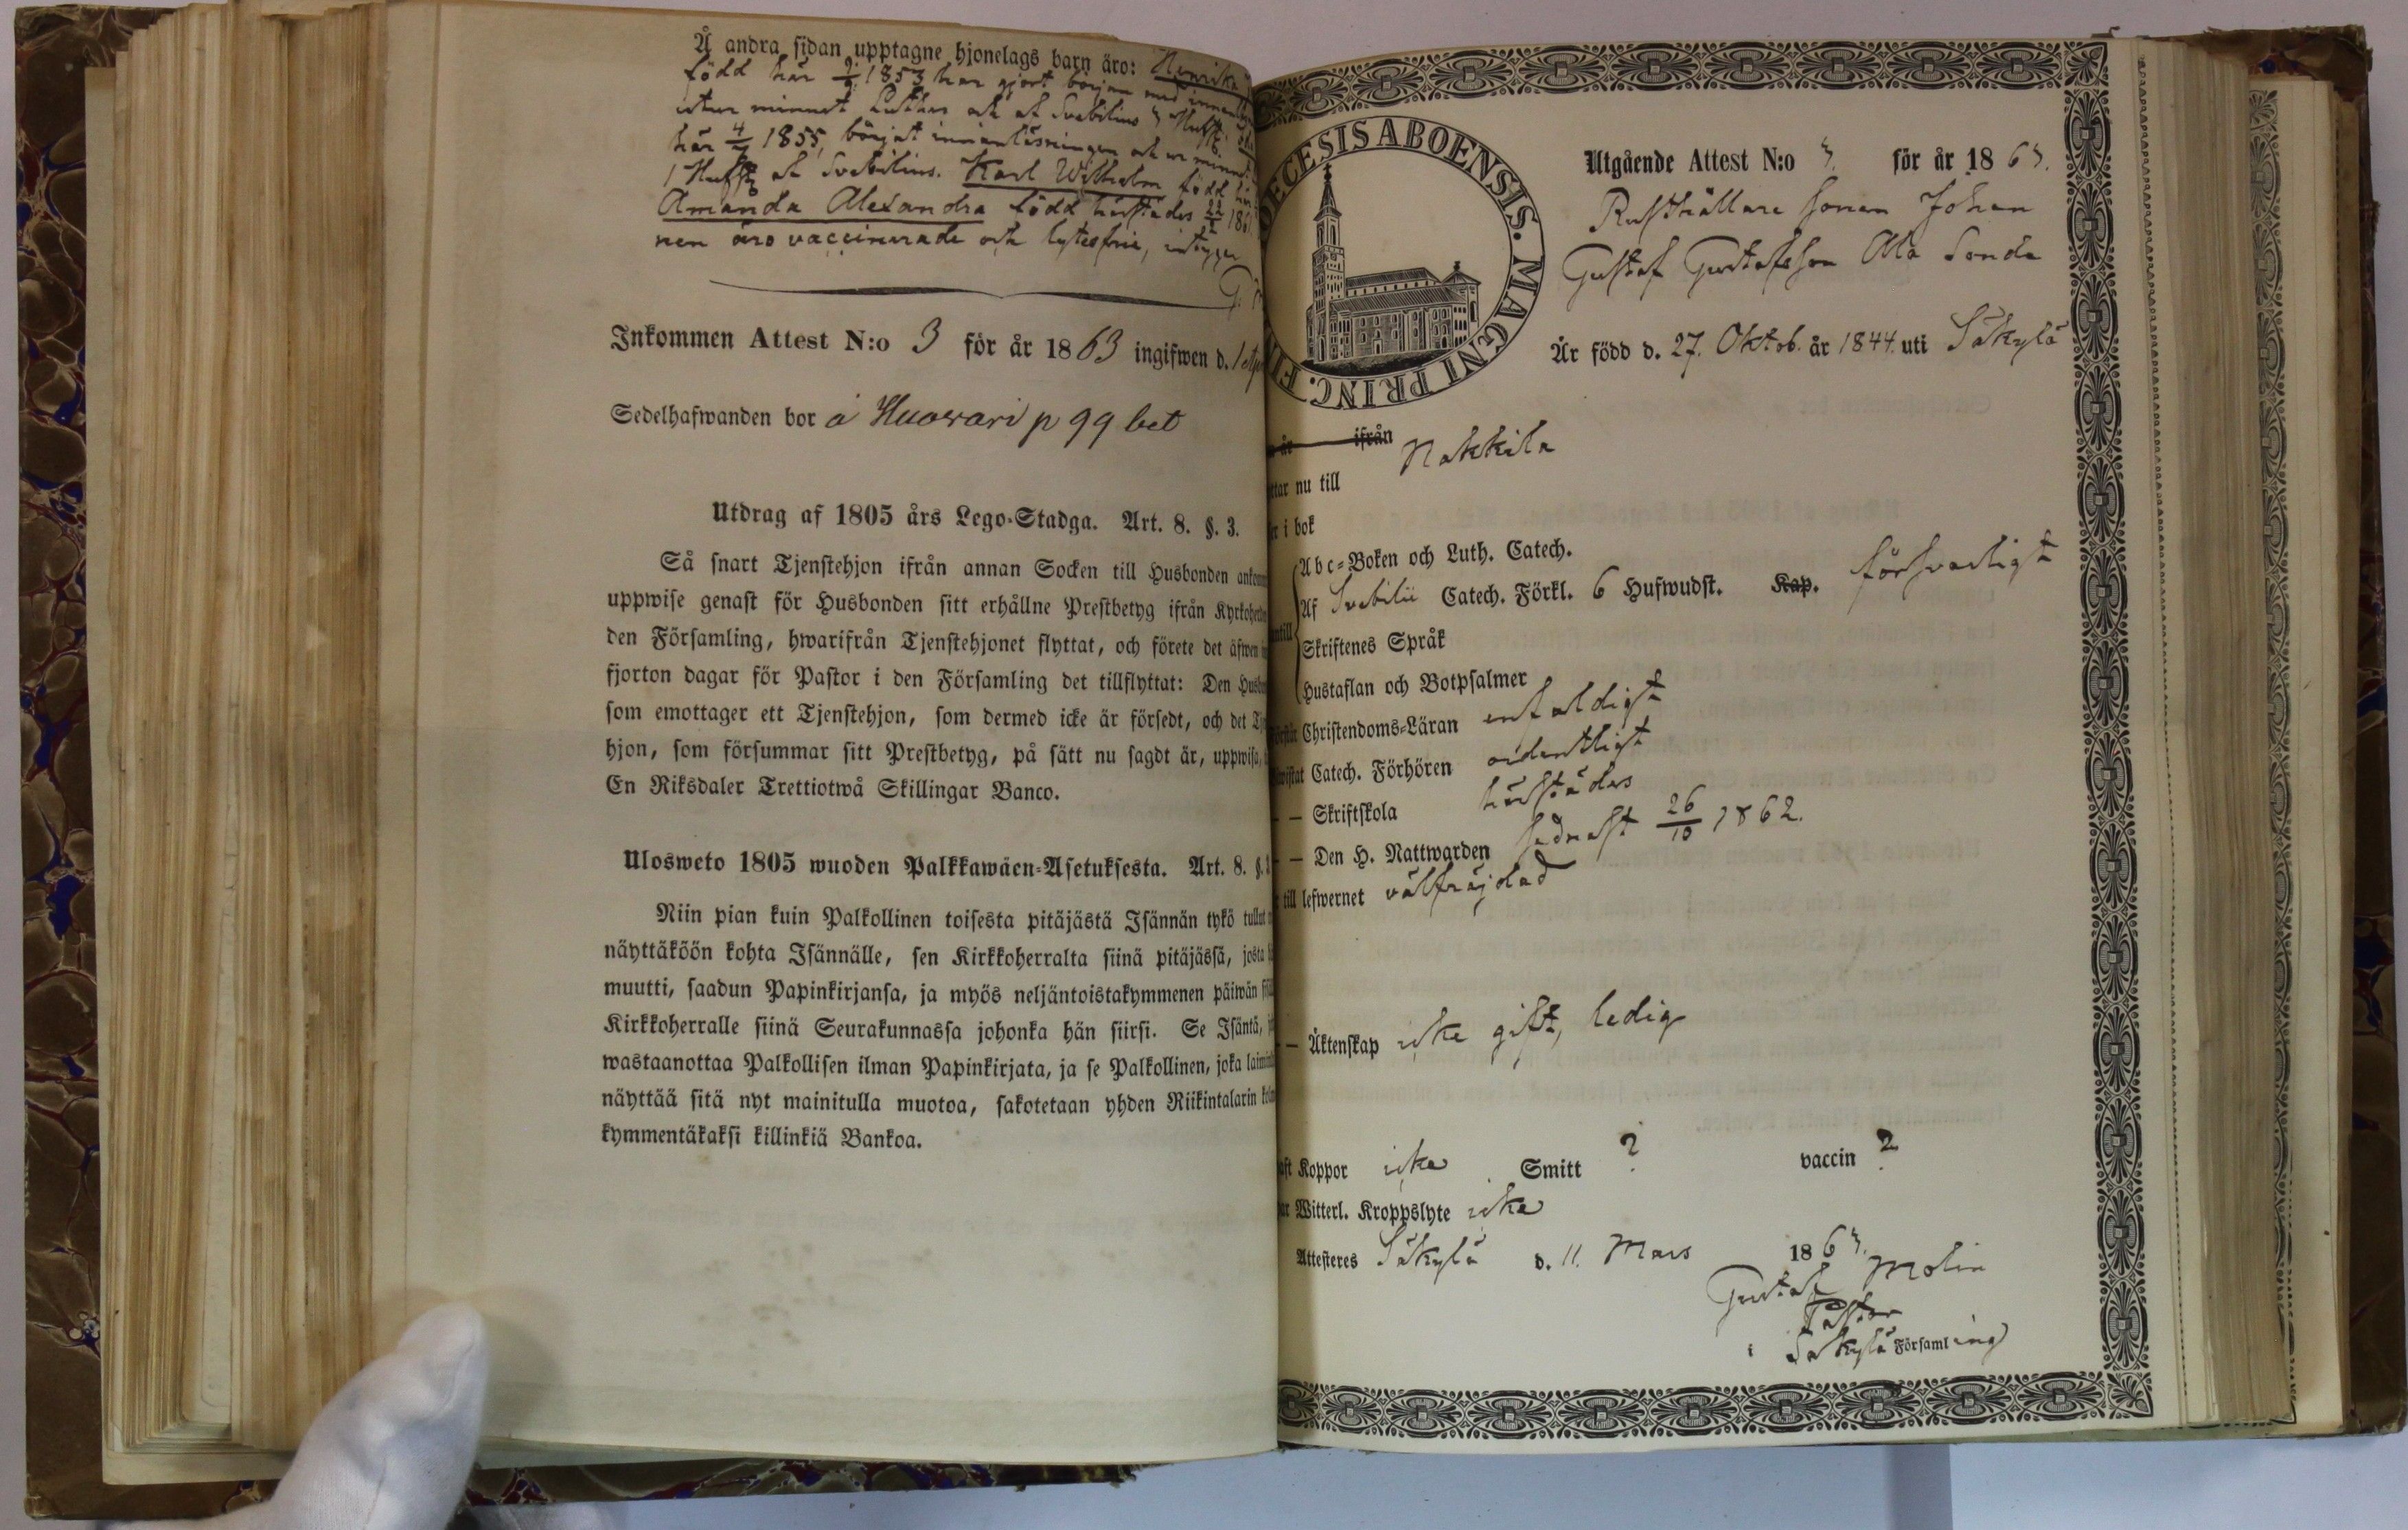 Å andra sidan upptagne hjonelags barn äro: Henrika
född här 1853 har gjort början med innan
utur minnet Luther och af Svebilius 3 Hufst.
här 4/4 1855, börjat innanläsningen och ur minnet
1 Hufst af Svebilius. Karl Wilhelm född här
Amanda Alexandra född härstädes 22
nen äro vaccinerade och lytesfrie, intygar
G.
Inkommen Attest N:o 3 för år 1863 ingifwen d. 1 Apr
Sedelhafwanden bor å Huovari p 99 bet
Utdrag af 1805 års Lego-Stadga. Art. 8. §. 3.
Så snart Tjenstehjon ifrån annan Socken till Husbonden ankom
uppwise genast för Husbonden sitt erhållne Prestbetyg ifrån Kyrkoherden
den Församling, hwarifrån Tjenstehjonet flyttat, och förete det äfwen
fjorton dagar för Pastor i den Församling det tillflyttat: Den Husbon
som emottager ett Tjenstehjon, som dermed icke är försedt, och det Tj
hjon, som försummar sitt Prestbetyg, på sätt nu sagdt är, uppwisa,
En Riksdaler Trettiotwå Skillingar Banco.
Ulosweto 1805 wuoden Palkkawäen-Asetuksesta. Art. 8. §.
Niin pian kuin Palkollinen toisesta pitäjästä Isännän tykö tullut
näyttäköön kohta Isännälle, sen Kirkkoherralta siinä pitäjässä, josta
muutti, saadun Papinkirjansa, ja myös neljäntoistakymmenen päiwän
Kirkkoherralle siinä Seurakunnassa johonka hän siirsi. Se Isäntä,
wastaanottaa Palkollisen ilman Papinkirjata, ja se Palkollinen, joka laimin
näyttää sitä nyt mainitulla muotoa, sakotetaan yhden Riikintalarin
kymmentäkaksi killinkiä Bankoa.
DECESIS ABOENSIS. MAGNI PRINC. FI
Utgående Attest N:o 3. för år 1863.
Rusthållare sonen Johan
Gustaf Gustafsson Ala Sonda
Är född d. 27. Oktob. år 1844. uti Säkylä
år ifrån
ttar nu till Nakkila
er i bok
Abc-Boken och Luth. Catech.
Af Svebilii Catech. Förkl. 6 Hufwudst. Kap. försvarligt
Skriftenes Språk
Hustaflan och Botpsalmer
Christendoms-Läran enfaldigt
wistat Catech. Förhören ordentligt
— Skriftskola härstädes
— Den H. Nattwarden sednast 26/10 1862.
till lefwernet välfräjdad
— Äktenskap icke gift, ledig
Koppor icke Smitt ? vaccin ?
Witterl. Kroppslyte icke
Attesteres Säkylä d. 11. Mars 1863.
Gustaf Molin
Pastor
i Säkylä Församling